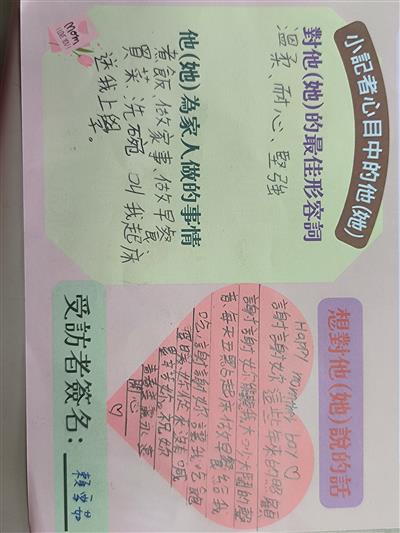 小記者心目中的他(她)
對他(她)的最佳形容詞
溫柔、耐心、堅強
他(她)為家人做的事情
煮飯、做家事、做早餐
買菜、洗碗、叫我起床
送我上學。
mom
I LOVE YOU
想對他(她)說的話
Happy mommther bay ♡
謝謝妳這些年來的照顧
謝謝妳
每天五點起床做早餐給我
吃,謝謝妳讓我吃飽
開心♡
受訪者簽名: